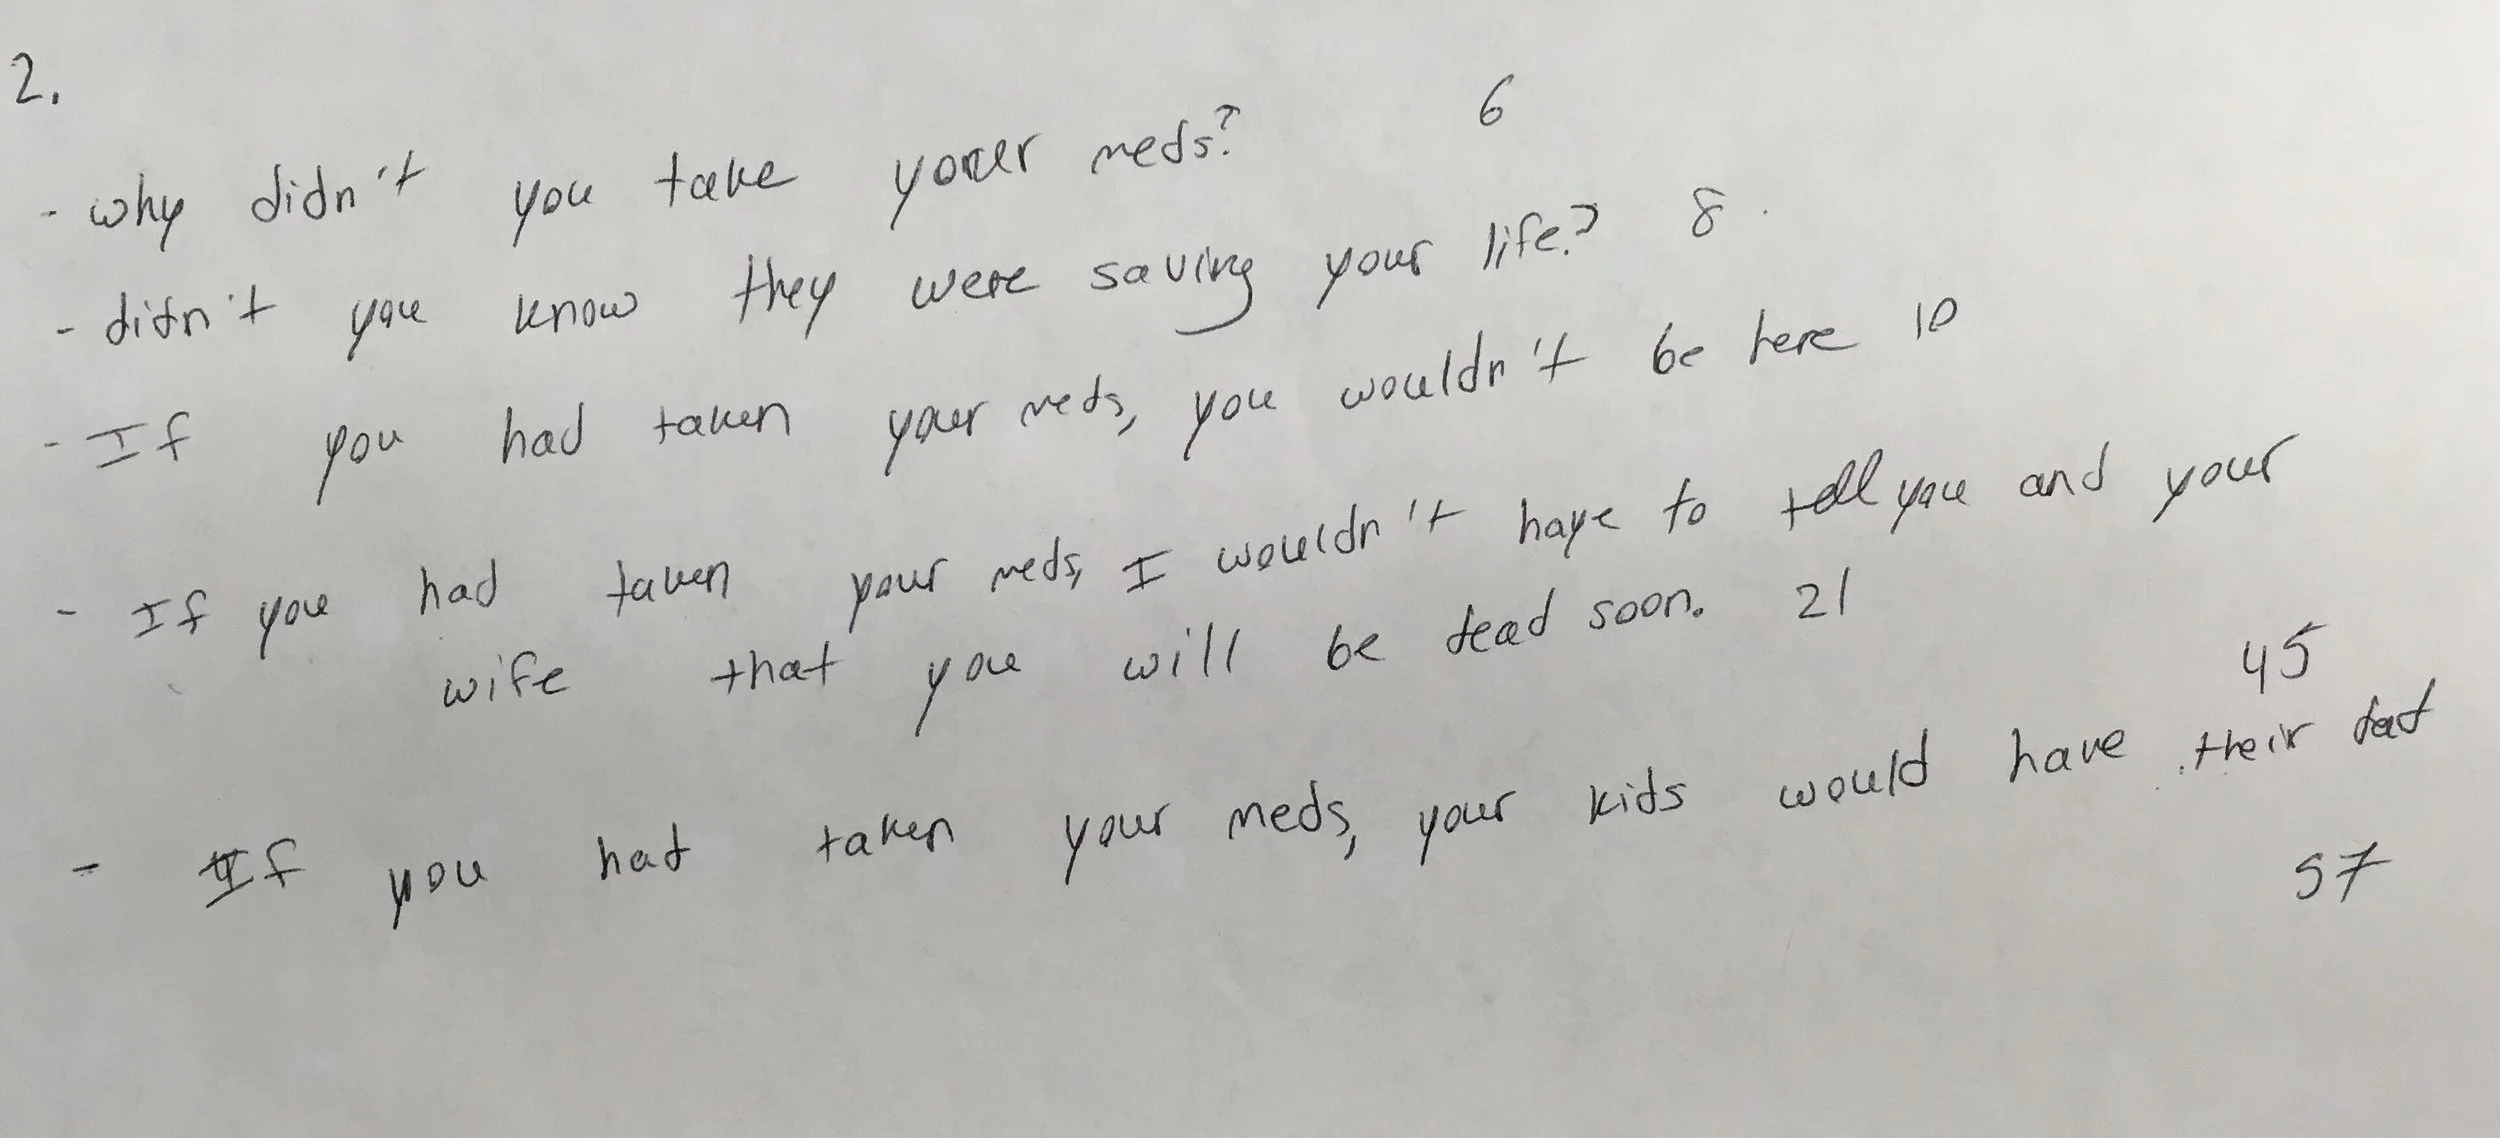 2.
- why didn't you take your meds? 6
- didn't you know they were saving your life? 8
- If you had taken your meds, you wouldn't be here 10
- If you had taken your meds, I wouldn't have to tell you and your
wife that you will be dead soon. 21
45
- If you had taken your meds, your kids would have their dad
57